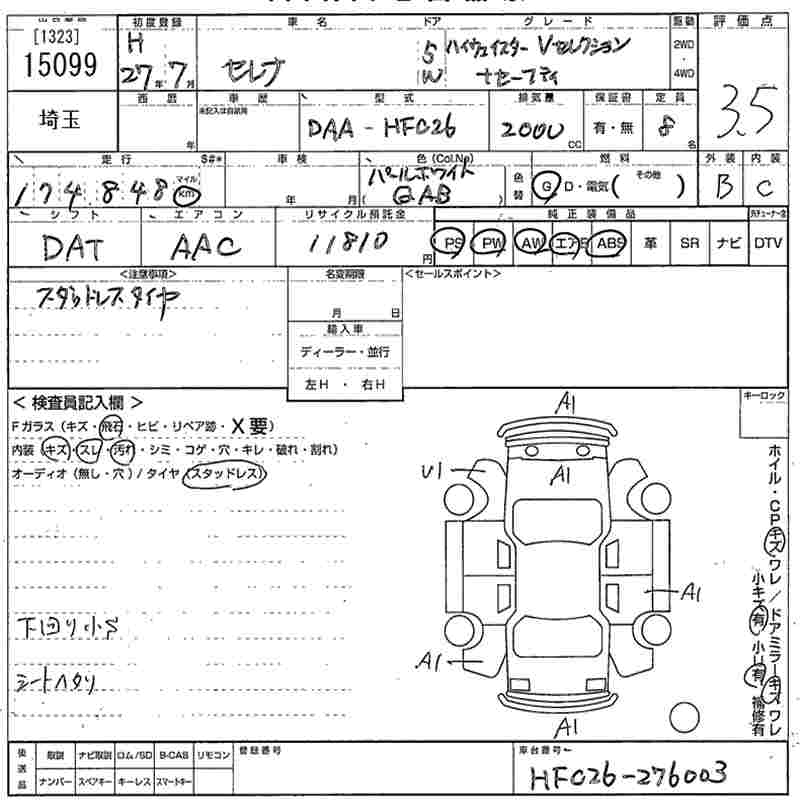 [1323]
15099
初度登録 車名 ドア グレード 駆動 評価点
H
27年7月
セレナ
5
W
ハイウェイスター Vセレクション
+セーフティ
2WD
・
4WD
3.5
埼玉
西暦 車歴 型式 排気量 保証書 定員
年
未記入は自家用
DAA-HFC26
2000
CC
有・無
8
名
走行 S#* 車検 色(Col.No) 燃料 外装 内装
174848
マイル
km
年 月
パールホワイト
(QAB)
色替
G D・電気(その他 )
B C
シフト エアコン リサイクル預託金 純正装備品
DAT AAC 11810円
PS PW AW エアB ABS 革 SR ナビ DTV
<注意事項> 名変期限 <セールスポイント>
スタッドレスタイヤ
月 日
輸入車
ディーラー・並行
左H・右H
< 検査員記入欄 >
キーロック
Fガラス(キズ・飛石・ヒビ・リペア跡・X要)
内装(キズ・スレ・汚れ・シミ・コゲ・穴・キレ・破れ・割れ)
オーディオ(無し・穴)/タイヤ(スタッドレス)
A1
U1
A1
A1
A1
A1
下回り小S
シートヘタリ
ホイル・CPキズワレ/ドアミラーキズワレ
小キズ有 小U有 補修有
後送品
取説 ナビ取説 ロム/SD B-CAS リモコン
ナンバー スペアキー キーレス スマートキー
登録番号
車台番号
HFC26-276003